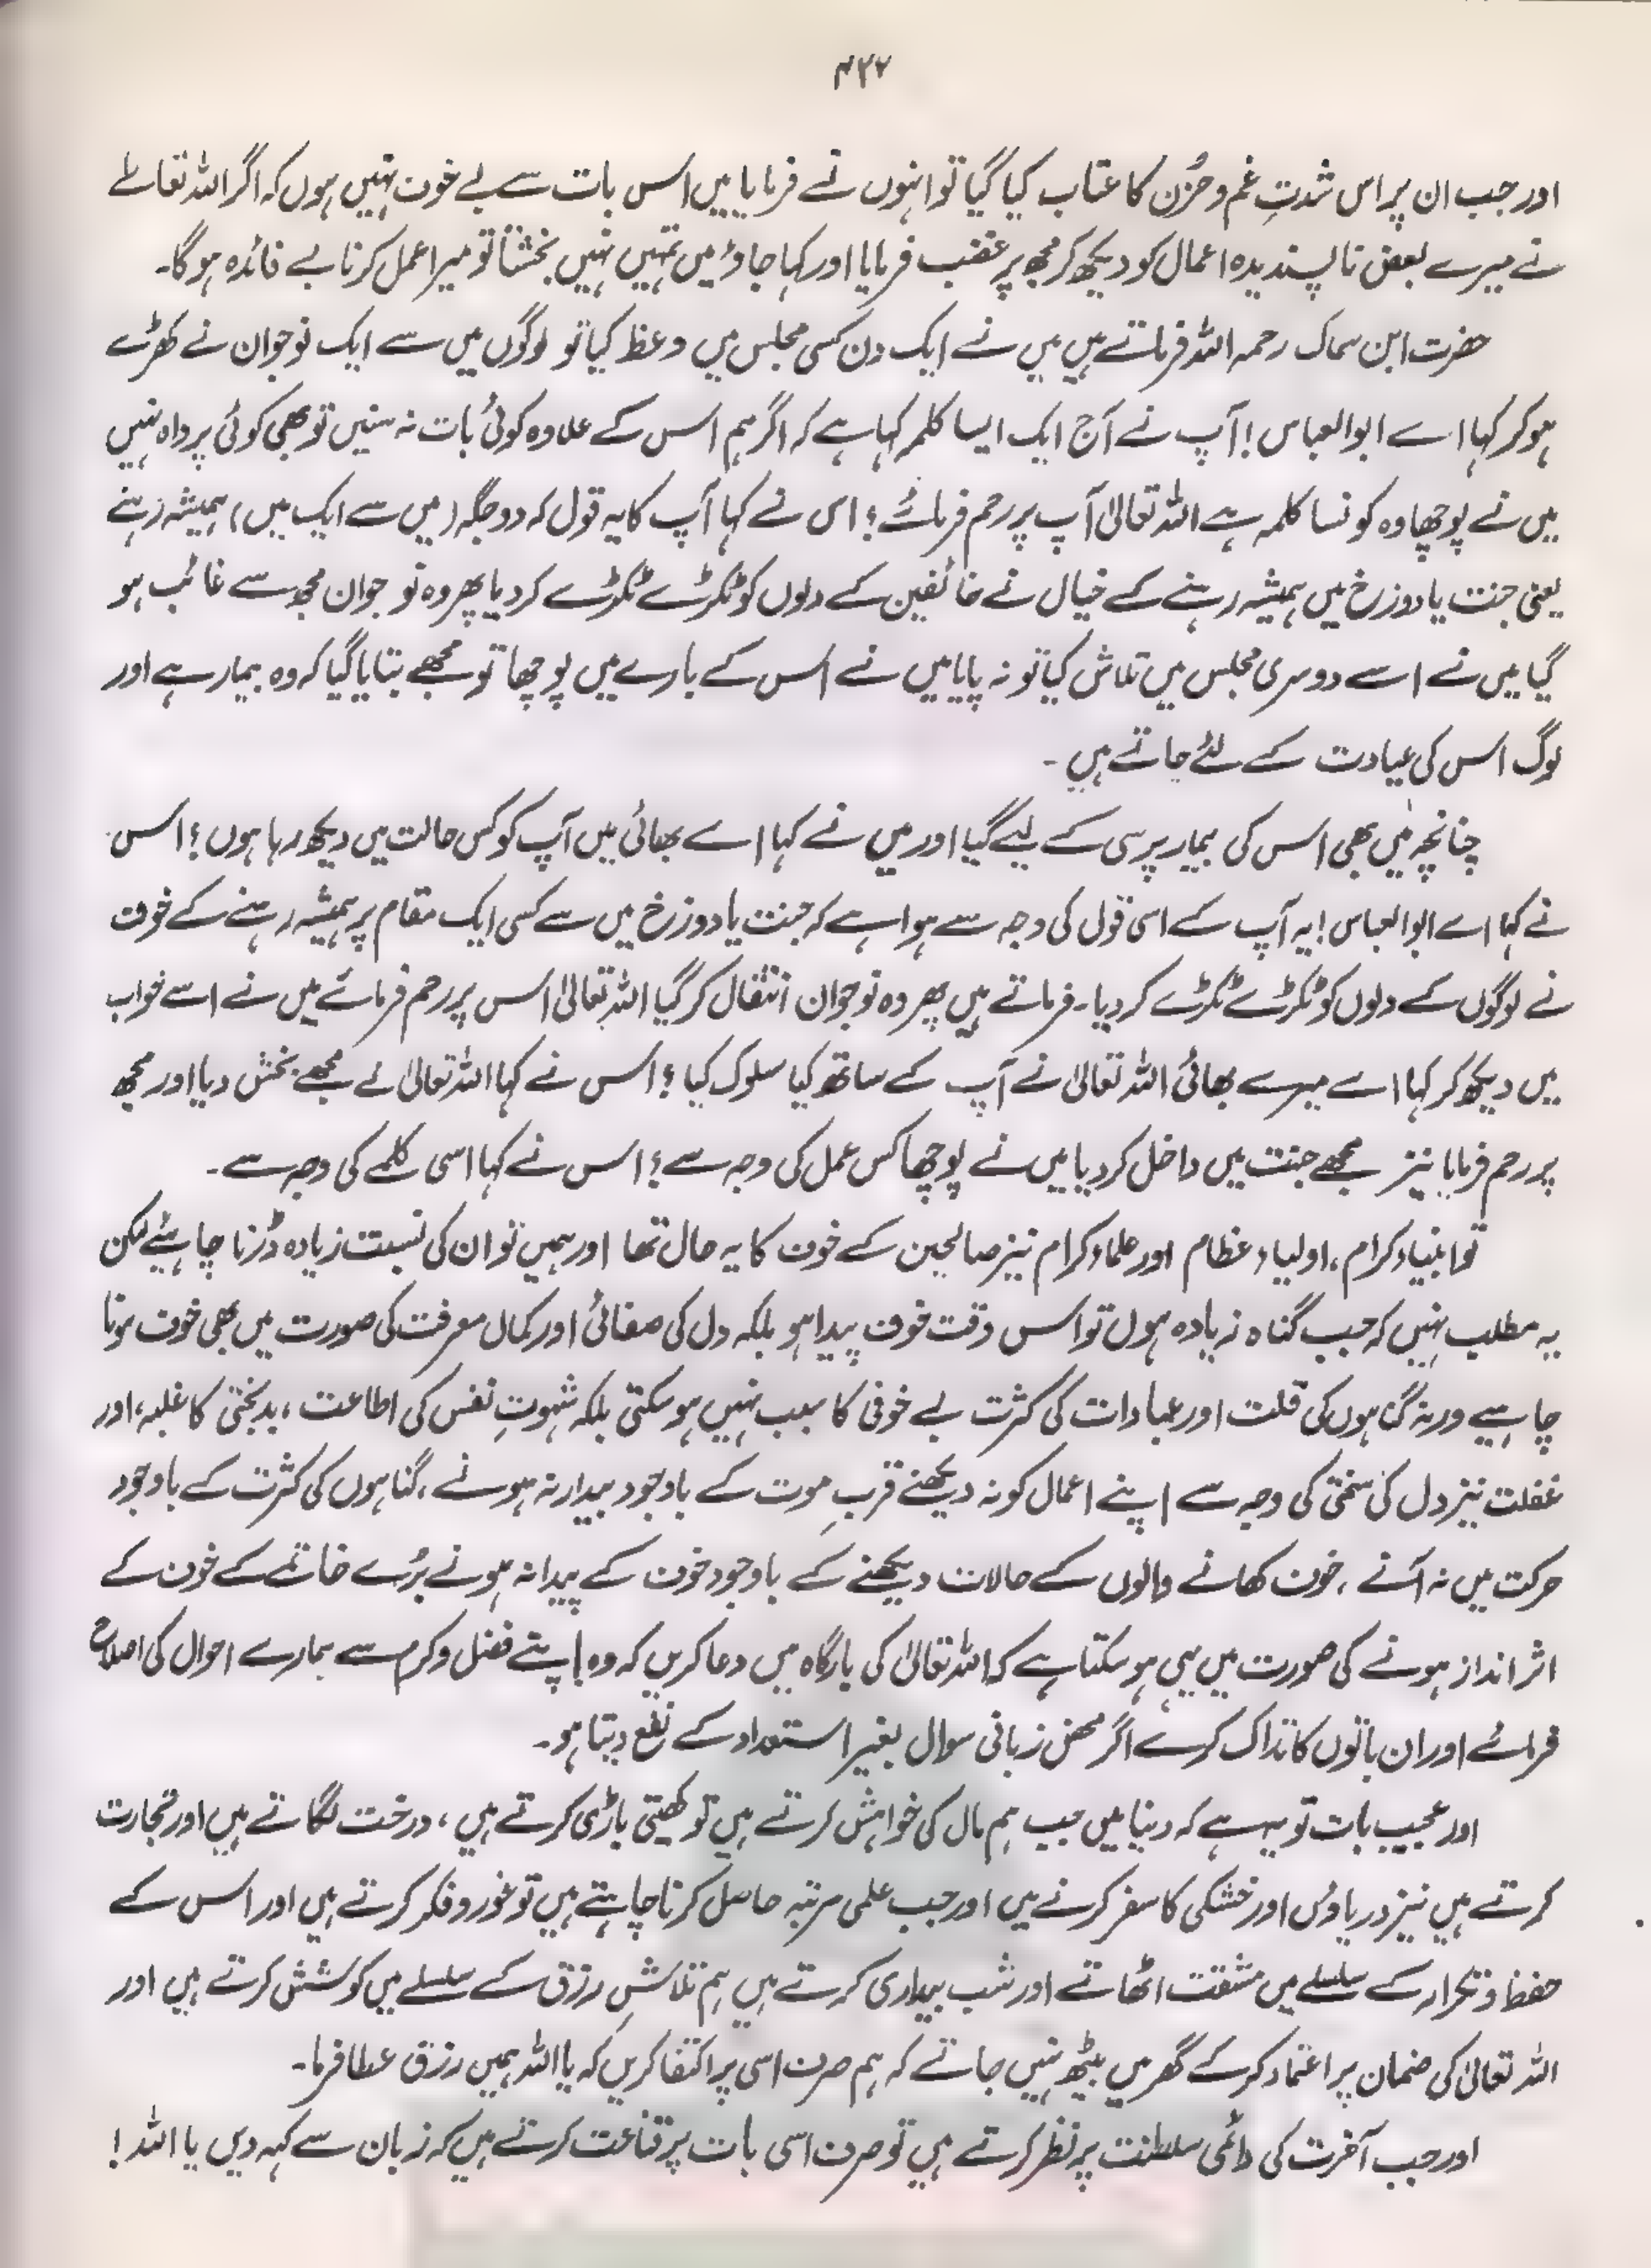 ۴۲۷
اور جب ان پر اس شدتِ غم و حُزن کا عتاب کیا گیا تو انہوں نے فرمایا میں اس بات سے بے خوف نہیں ہوں کہ اگر اللہ تعالےٰ
نے میرے بعض ناپسندیدہ اعمال کو دیکھ کر مجھ پر غضب فرمایا اور کہا جاؤ میں تمہیں نہیں بخشتا تو میرا عمل کرنا بے فائدہ ہو گا۔
حضرت ابن سماک رحمہ اللہ فرماتے ہیں میں نے ایک دن کسی مجلس میں وعظ کیا تو لوگوں میں سے ایک نوجوان نے کھڑے
ہو کر کہا اے ابو العباس ! آپ نے آج ایک ایسا کلمہ کہا ہے کہ اگر ہم اس کے علاوہ کوئی بات نہ سنیں تو بھی کوئی پرواہ نہیں
میں نے پوچھا وہ کونسا کلمہ ہے اللہ تعالیٰ آپ پر رحم فرمائے؛ اس نے کہا آپ کا یہ قول کہ دو جگہ (میں سے ایک میں) ہمیشہ رہنے
یعنی جنت یا دوزخ میں ہمیشہ رہنے کے خیال نے خائفین کے دلوں کو ٹکڑے ٹکڑے کر دیا پھر وہ نوجوان مجھ سے غائب ہو
گیا میں نے اسے دوسری مجلس میں تلاش کیا تو نہ پایا میں نے اس کے بارے میں پوچھا تو مجھے بتایا گیا کہ وہ بیمار ہے اور
لوگ اس کی عیادت کے لئے جاتے ہیں ۔
چنانچہ میں بھی اس کی بیمار پرسی کے لیے گیا اور میں نے کہا اے بھائی میں آپ کو کس حالت میں دیکھ رہا ہوں؛ اس
نے کہا اے ابو العباس ! یہ آپ کے اسی قول کی وجہ سے ہوا ہے کہ جنت یا دوزخ میں سے کسی ایک مقام پر ہمیشہ رہنے کے خوف
نے لوگوں کے دلوں کو ٹکڑے ٹکڑے کر دیا۔ فرماتے ہیں پھر وہ نوجوان انتقال کر گیا اللہ تعالیٰ اس پر رحم فرمائے میں نے اسے خواب
میں دیکھ کر کہا اے میرے بھائی اللہ تعالیٰ نے آپ کے ساتھ کیا سلوک کیا ؟ اس نے کہا اللہ تعالیٰ نے مجھے بخش دیا اور مجھ
پر رحم فرمایا نیز مجھے جنت میں داخل کر دیا میں نے پوچھا کس عمل کی وجہ سے؛ اس نے کہا اسی کلمے کی وجہ سے ۔
تو انبیاء کرام، اولیاء عظام اور علماء کرام نیز صالحین کے خوف کا یہ حال تھا اور ہمیں تو ان کی نسبت زیادہ ڈرنا چاہئیے لیکن
یہ مطلب نہیں کہ جب گناہ زیادہ ہوں تو اس وقت خوف پیدا ہو بلکہ دل کی صفائی اور کمال معرفت کی صورت میں بھی خوف ہونا
چاہیے ورنہ گناہوں کی قلت اور عبادات کی کثرت بے خوفی کا سبب نہیں ہو سکتی بلکہ شہوتِ نفس کی اطاعت ، بدبختی کا غلبہ، اور
غفلت نیز دل کی سختی کی وجہ سے اپنے اعمال کو نہ دیکھنے قربِ موت کے باوجود بیدار نہ ہونے ، گناہوں کی کثرت کے باوجود
حرکت میں نہ آنے ، خوف کھانے والوں کے حالات دیکھنے کے باوجود خوف کے پیدا نہ ہونے بُرے خاتمے کے خوف کے
اثر انداز ہونے کی صورت میں یہی ہو سکتا ہے کہ اللہ تعالیٰ کی بارگاہ میں دعا کریں کہ وہ اپنے فضل و کرم سے ہمارے احوال کی اصلاح
فرمائے اور ان باتوں کا تدارک کرے اگر محض زبانی سوال بغیر استعداد کے نفع دیتا ہو۔
اور عجیب بات تو یہ ہے کہ دنیا میں جب ہم مال کی خواہش کرتے ہیں تو کھیتی باڑی کرتے ہیں ، درخت لگاتے ہیں اور تجارت
کرتے ہیں نیز دریاؤں اور خشکی کا سفر کرتے ہیں اور جب علمی مرتبہ حاصل کرنا چاہتے ہیں تو غور و فکر کرتے ہیں اور اس کے
حفظ و تکرار کے سلسلے میں مشقت اٹھاتے اور شب بیداری کرتے ہیں ہم تلاشِ رزق کے سلسلے میں کوشش کرتے ہیں اور
اللہ تعالیٰ کی ضمان پر اعتماد کر کے گھر میں بیٹھ نہیں جاتے کہ ہم صرف اسی پر اکتفا کریں کہ یا اللہ ہمیں رزق عطا فرما۔
اور جب آخرت کی دائمی سلطنت پر نظر کرتے ہیں تو صرف اسی بات پر قناعت کرتے ہیں کہ زبان سے کہہ دیں یا اللہ !